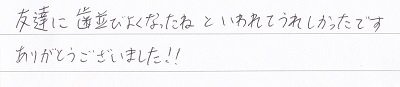 友達に歯並びよくなったね といわれてうれしかったです
ありがとうございました!!